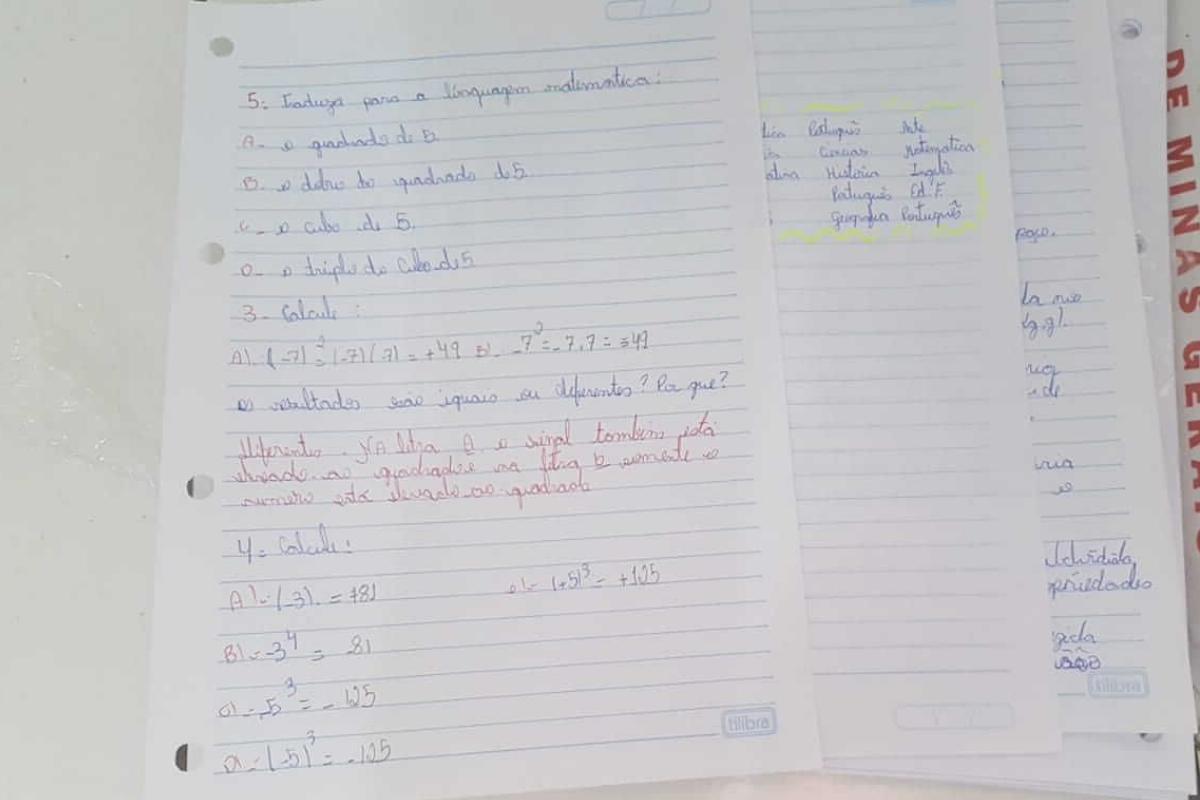 5- Traduza para a linguagem matemática:
A- o quadrado de 5
B- o dobro do quadrado de 5
C- o cubo de 5.
D- o triplo do cubo de 5
3- Calcule:
A)- (-7)² = (-7)(-7) = +49 B)- -7² = -7.7 = -49
os resultados são iguais ou diferentes? Por que?
Diferentes. Na letra A o sinal também está
elevado ao quadrado e na letra B somente o
numero está elevado ao quadrado
4- Calcule:
A)- (-3) = +81 e)- (+5)³ = +125
B)- -3⁴ = -81
c)- -5³ = -125
d)- (-5)³ = -125
tilibra
Português Arte
Ciências Matematica
História Inglês
Português Ed. F.
Geografia Português
tilibra
DE MINAS GERAIS